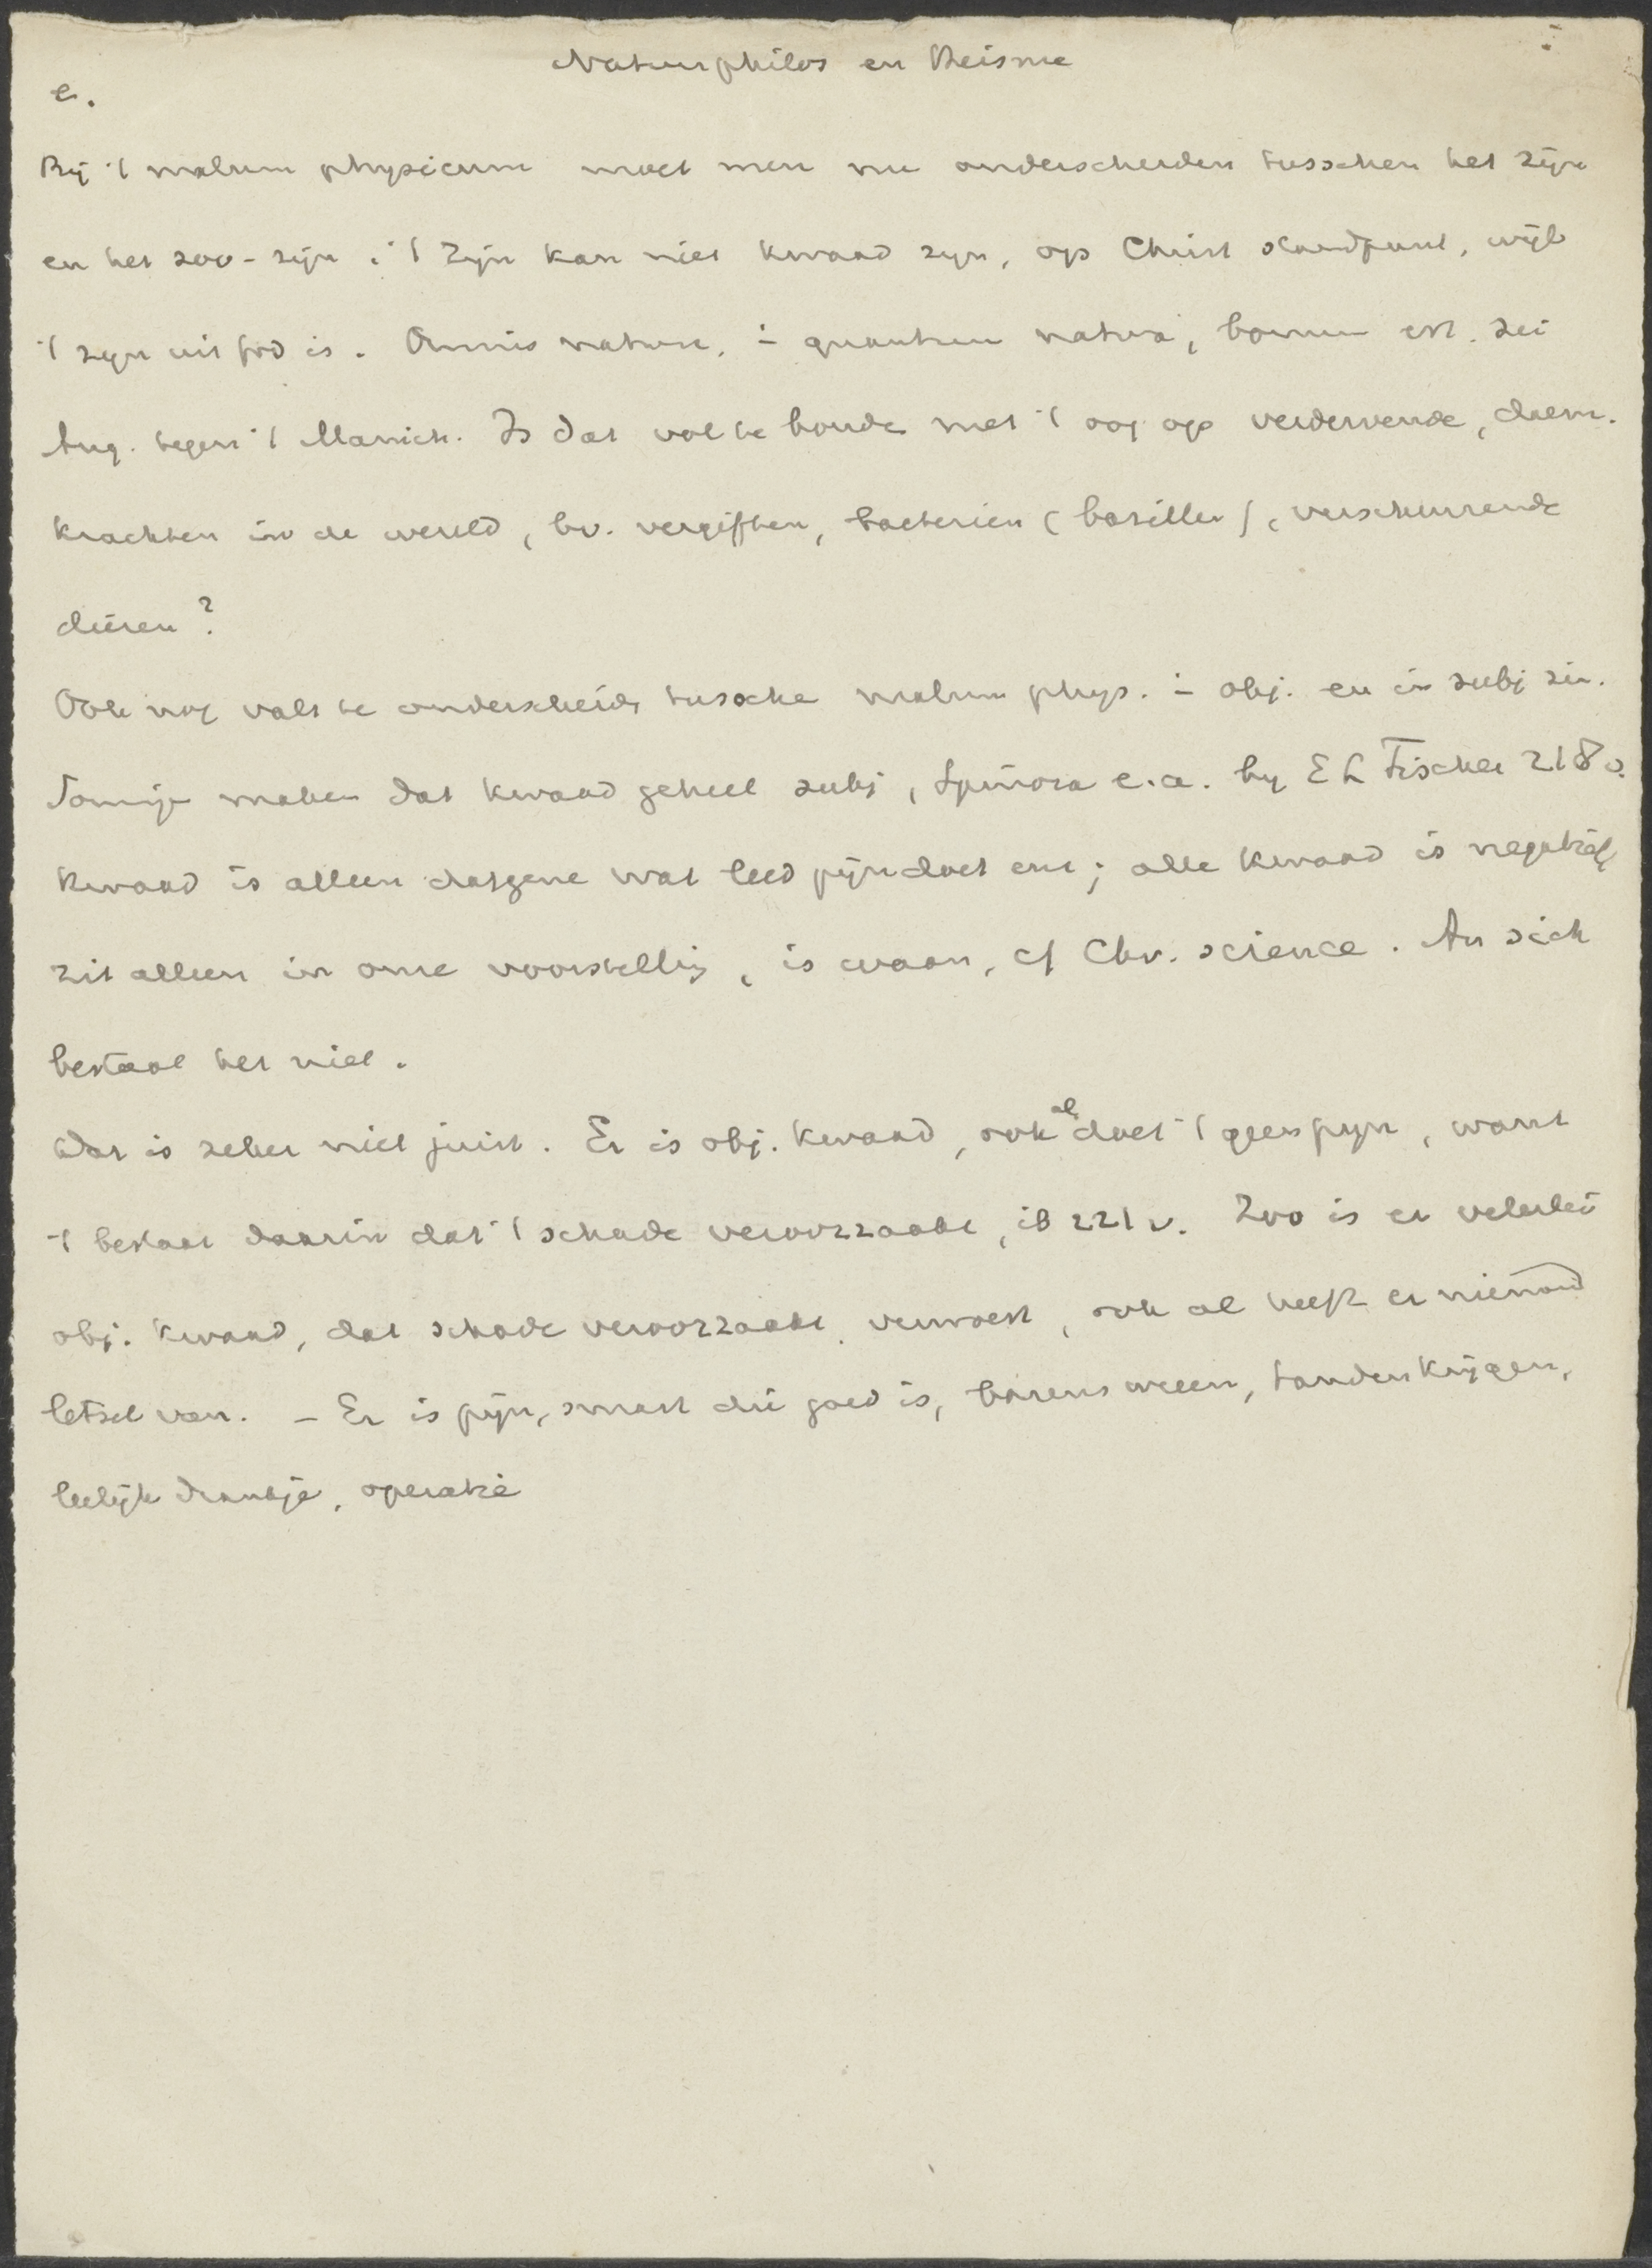 Natuurphilos en Theisme
e.
Bij 't malum physicum moet men nu onderscheiden tusschen het zijn
en het zoo-zijn; 't zijn kan niet kwaad zijn, op Christ standpunt, wijl
't zijn uit God is. Omnis natura, in quantum natura, bonum est. zei
Aug. tegen 't Manich. Is dat vol te houde met 't oog op verdervende, daem.
krachten in de wereld, bv. vergiften, bacterien (bacillen), verscheurende
dieren?
Ook nog valt te onderscheide tussche malum phys. in obj. en in subj zin.
Somige maken dat kwaad geheel subj, Spinoza e.a. by E L Fischer 218 v.
kwaad is alleen datgene wat leed pijn doet enz; alle kwaad is negatief,
zit alleen in onze voorstellig, is waan, cf Chr. science. An sich
bestaat het niet.
Dat is zeker niet juist. Er is obj. kwaad, ook al doet 't geen pijn, want
't bestaat daarin dat 't schade veroorzaakt, ib 221 v. Zoo is er velerlei
obj. kwaad, dat schade veroorzaakt, verwoest, ook al heeft er niemand
letsel van. - Er is pijn, smart die goed is, barensweeen, tandenkrijgen,
leelijk drankje, operatie